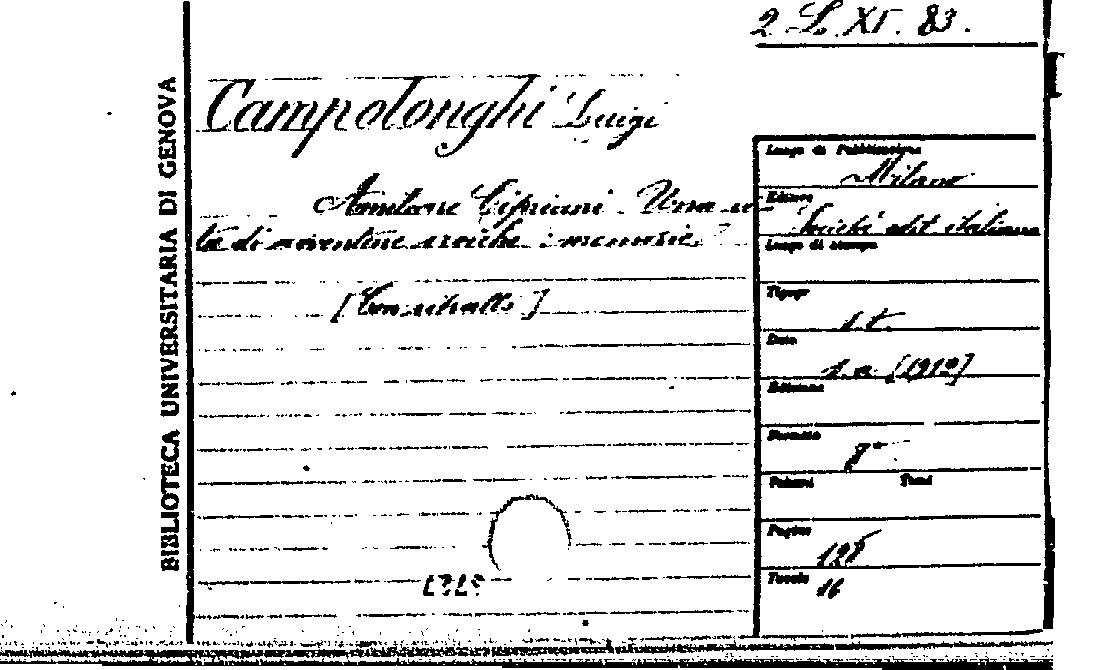 2. L. XI. 83.
BIBLIOTECA UNIVERSITARIA DI GENOVA
Campolonghi Luigi
Amilcare Cipriani. Una vi-
ta di avventure eroiche: memorie.
[Con ritratto]
Luogo di Pubblicazione
Milano
Editore
Società edit. italiana
Luogo di stampa
Tipogr.
s.t.
Data
s.a. [1912]
Edizione
Formato
8°
Volumi Tomi
Pagine
128
Tavole
16